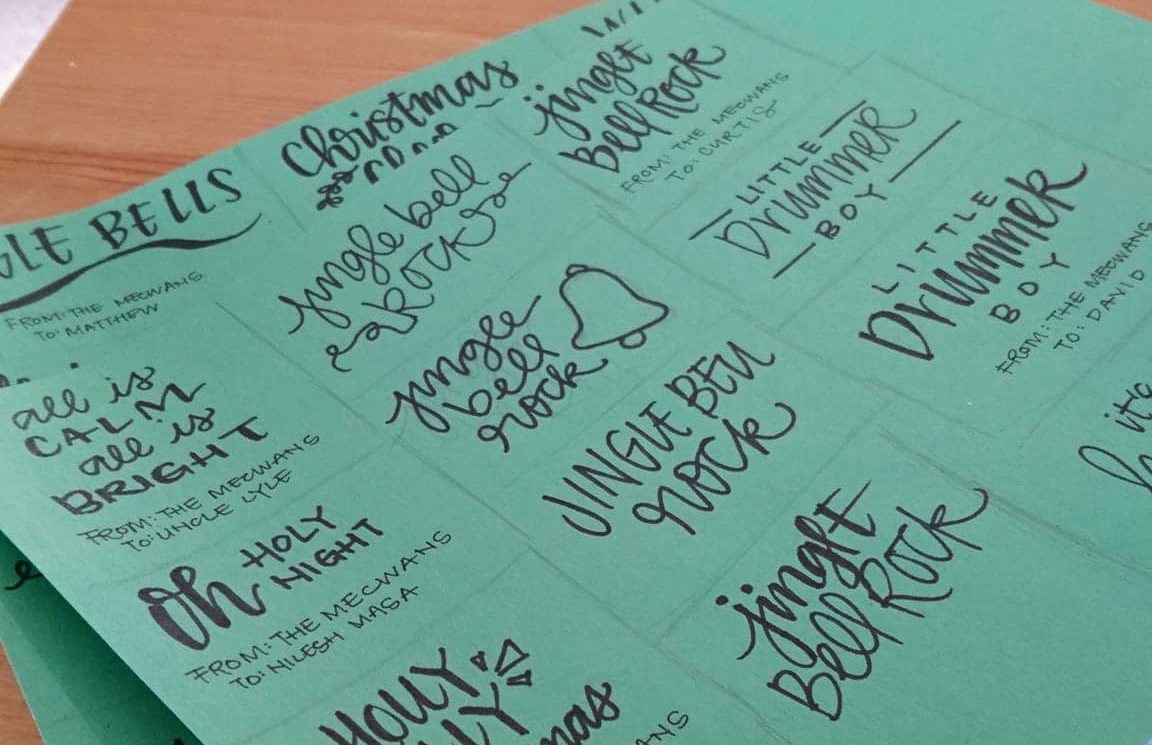 BELLS
FROM: THE MECWANS
TO: MATTHEW
Christmas
jingle
Bell Rock
FROM: THE MECWANS
TO: CURTIS
jingle bell
ROCK
LITTLE
Drummer
BOY
all is
CALM
all is
BRIGHT
FROM: THE MECWANS
TO: UNCLE LYLE
jingle
bell
rock
LITTLE
Drummer
BOY
FROM: THE MECWANS
TO: DAVID
Oh HOLY
NIGHT
FROM: THE MECWANS
TO: NILESH MASA
JINGLE BELL
ROCK
it's
HOLLY
jingle
Bell Rock